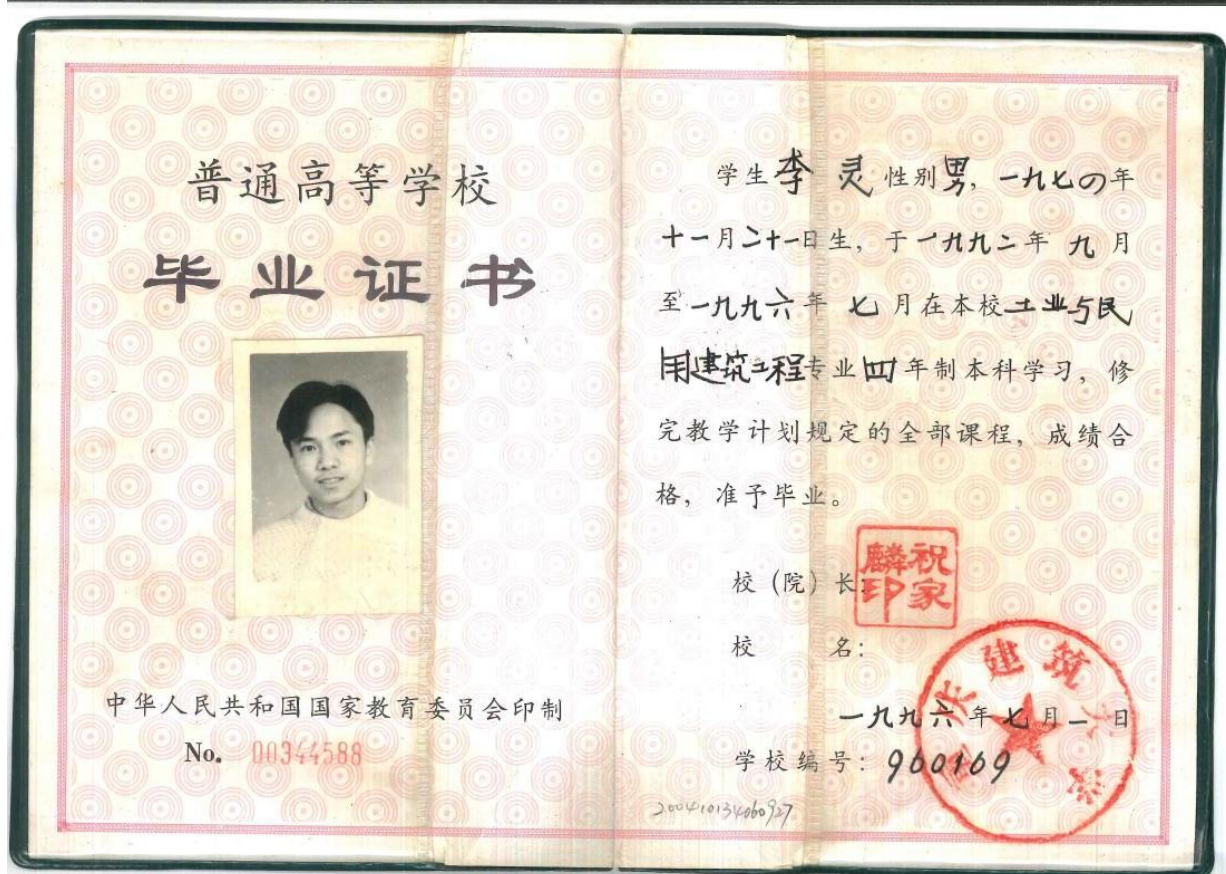 普通高等学校
毕业证书
中华人民共和国国家教育委员会印制
No. 00344588
学生李灵性别男，一九七四年
十一月二十一日生，于一九九二年九月
至一九九六年七月在本校工业与民
用建筑工程专业四年制本科学习，修
完教学计划规定的全部课程，成绩合
格，准予毕业。
校（院）长：
祝家麟印
校名：
重庆建筑大学
一九九六年七月一日
学校编号：960169
200410134060927